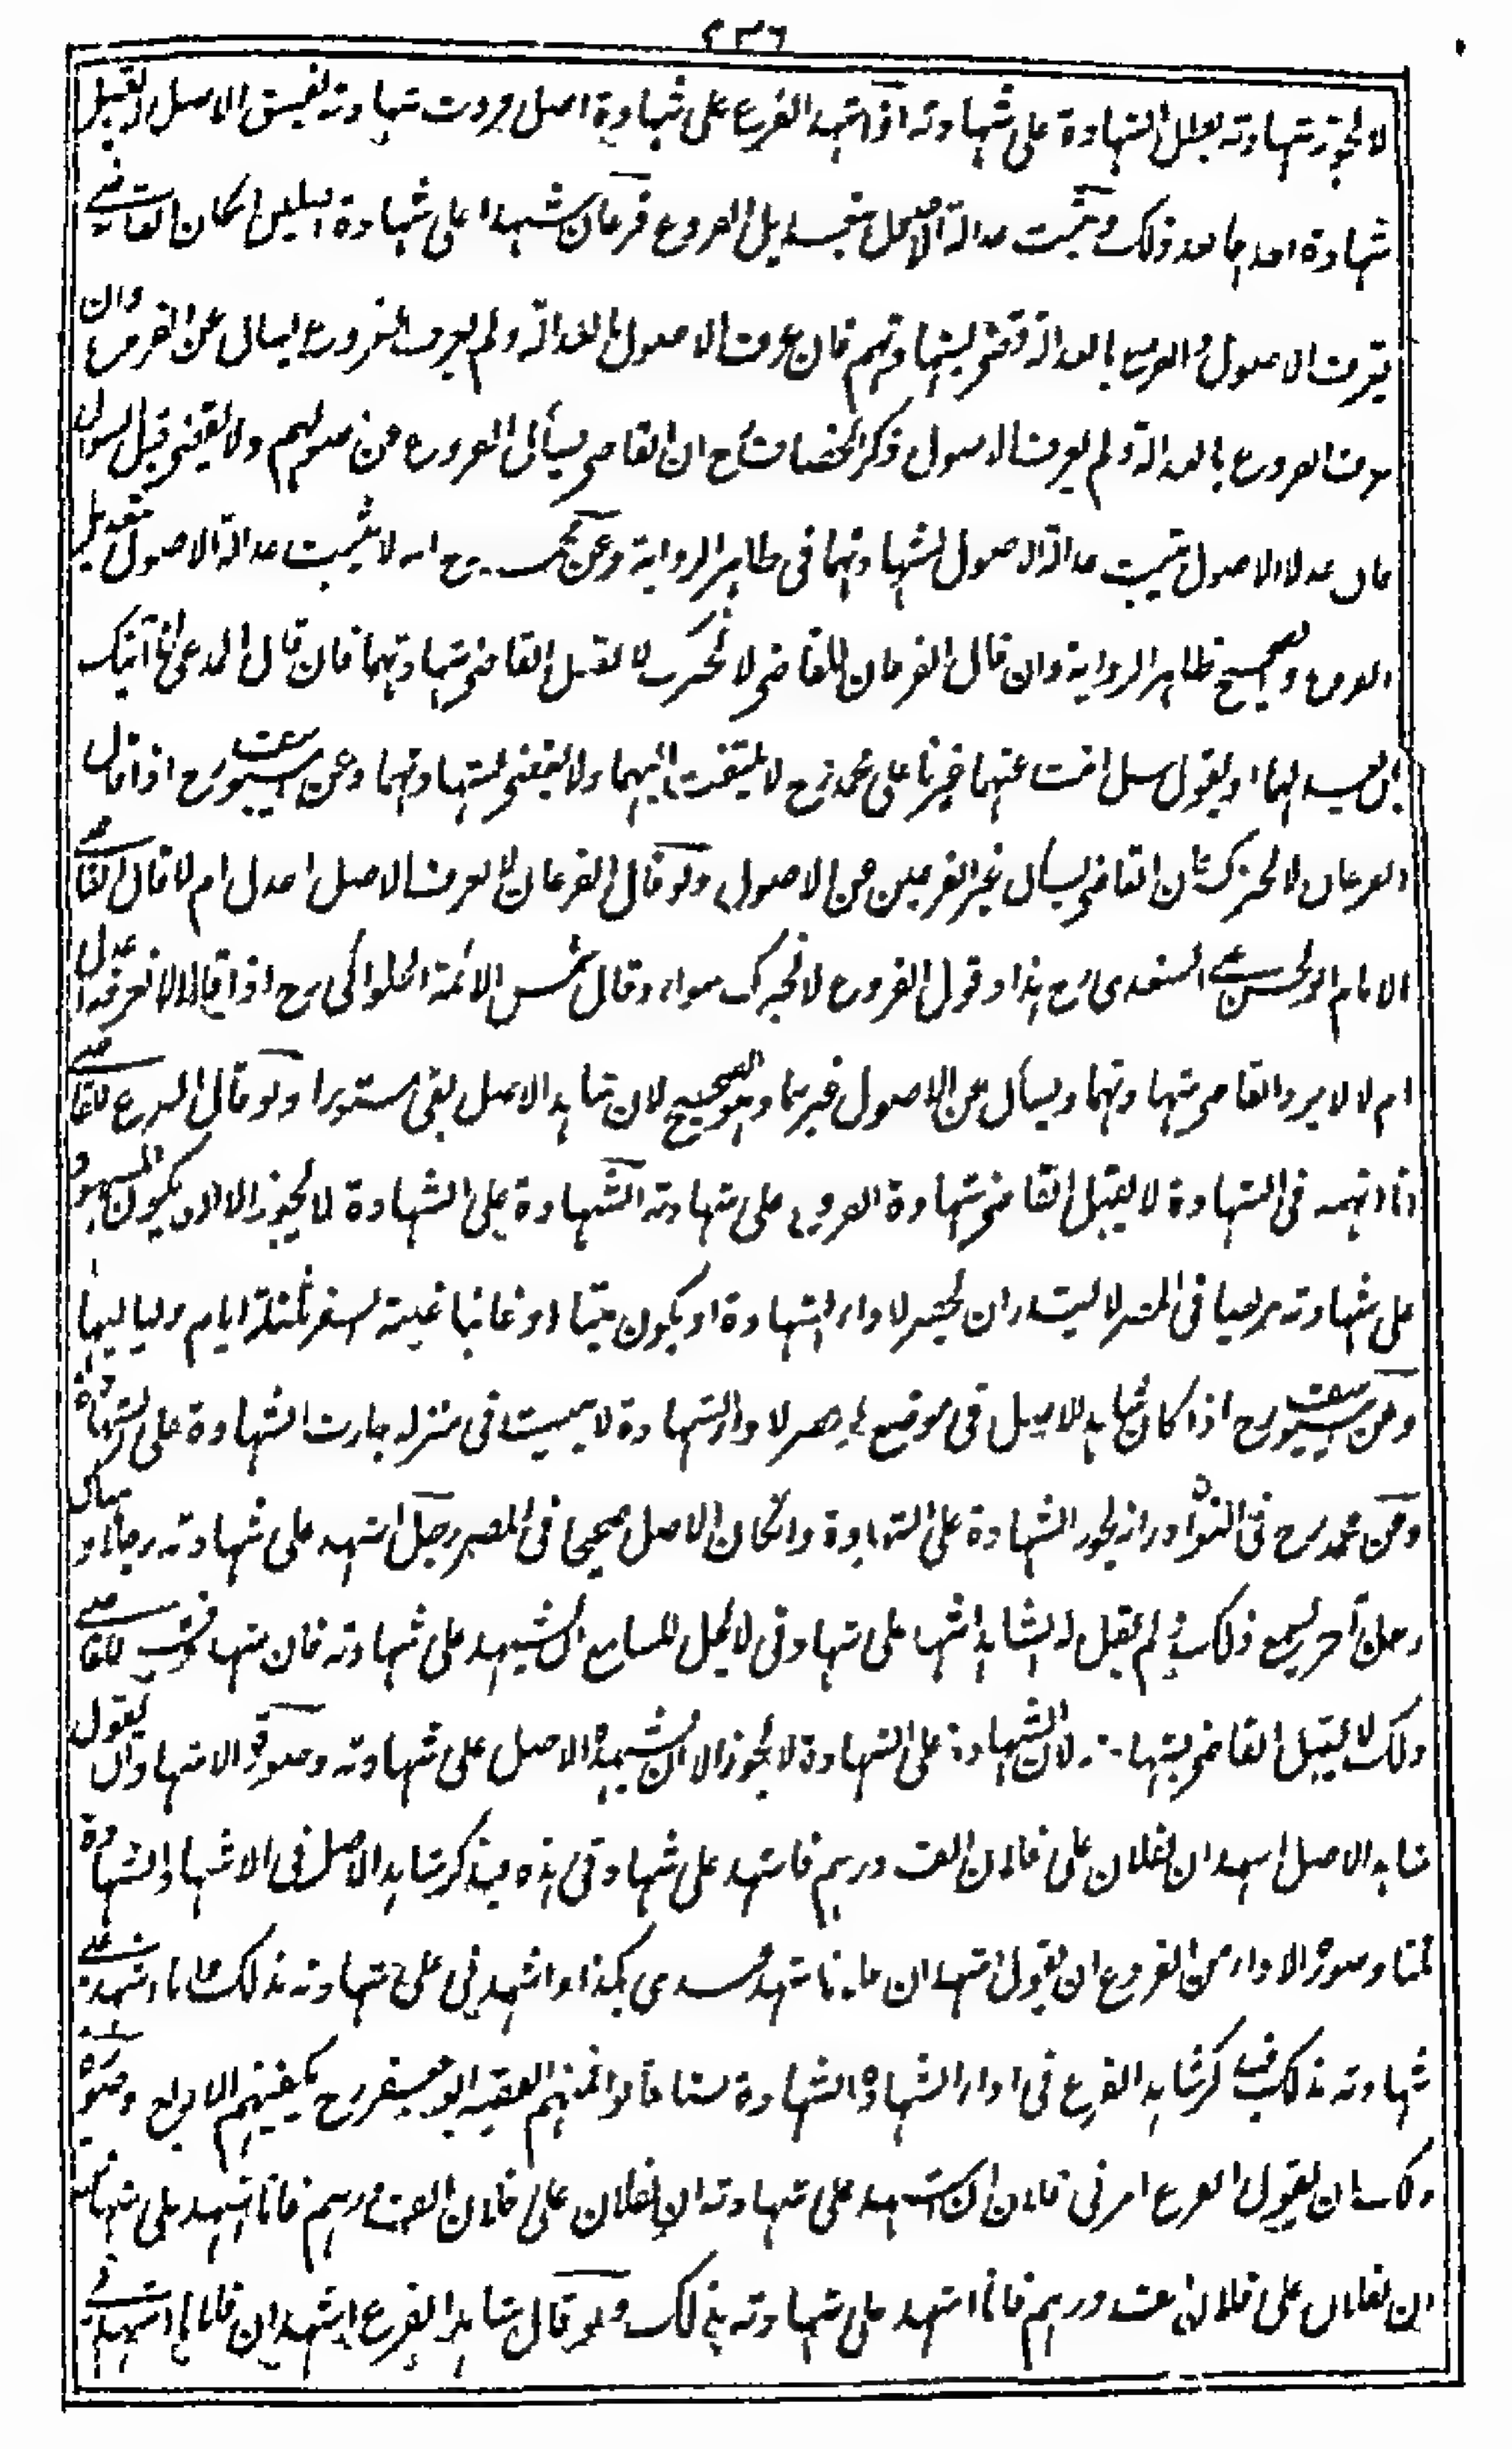 ٢٣٦
لا تجوز شهادته بطل الشهادة على شهادته اذا شهد الفرع على شهادة اصل وردت شهادته لفسق الاصل لا تقبل
شهادة احدهما بعد ذلك وتثبت عدالة الاصل بتعديل الفروع فرعان شهدا على شهادة اصلين ان كان القاضي
يعرف الاصول والفروع بالعدالة قضى بشهادتهم فان عرف الاصول بالعدالة ولم يعرف الفروع يسال عن الفروع وان
عرف الفروع بالعدالة ولم يعرف الاصول ذكر الخصاف رح ان القاضي يسأل الفروع عن اصولهم ولا يقضي قبل السوال
فان عدلا الاصول تثبت عدالة الاصول بشهادتهما في ظاهر الرواية وعن محمد رح انه لا تثبت عدالة الاصول بتعديل
الفروع والصحيح ظاهر الرواية وان قال الفرعان للقاضي لا نخبرك لا تقبل القاضي شهادتهما فان قال المدعي انا آتيك
بمن يعدلهما او يقول سل انت عنهما غيرنا على محمد رح لا يلتفت اليهما ولا يقضي بشهادتهما وعن ابي يوسف رح اذا قال
الفرعان لا نخبرك كان القاضي يسأل غير الفرعين عن الاصول ولو قال الفرعان لا نعرف الاصل اعدل ام لا قال القاضي
الامام ابو الحسن علي السغدي رح هذا وقول الفروع لا نخبرك سواء وقال شمس الائمة الحلوائي رح اذا قالا لا نعرفه اعدل
ام لا لا يرد القاضي شهادتهما ويسأل عن الاصول غيرهما وهو الصحيح لان شاهد الاصل بقي مستورا ولو قال الفرع للقاضي
انا اتهمه في الشهادة لا يقبل القاضي شهادة الفروع على شهادته الشهادة على الشهادة لا تجوز الا ان يكون المشهود
على شهادته مريضا في المصر لا يستطيع ان يحضر لاداء الشهادة او يكون ميتا او غائبا غيبة السفر ثلثة ايام ولياليها
وعن ابي يوسف رح اذا كان شاهد الاصل في موضع لو حضر لاداء الشهادة لا يبيت في منزله جازت الشهادة على الشهادة
وعن محمد رح في النوادر انه يجوز الشهادة على الشهادة وان كان الاصل صحيحا في المصر رجل اشهد على شهادته رجلا وهناك
رجل آخر يسمع ذلك ولم يقل له الشاهد اشهد على شهادتي لا يحل للسامع ان يشهد على شهادته فان شهد وفسر للقاضي
ذلك لا يقبل القاضي شهادته لان الشهادة على الشهادة لا تجوز الا ان يشهده الاصل على شهادته وصورة الاشهاد ان يقول
شاهد الاصل اشهد ان لفلان على فلان الف درهم فاشهد على شهادتي هذه فيذكر شاهد الاصل في الاشهاد الشهادة
ثلثا وصورة الاداء من الفروع ان يقول اشهد ان فلانا شهد عندي بكذا واشهدني على شهادته بذلك فانا اشهد على
شهادته بذلك فيذكر شاهد الفرع في اداء الشهادة الشهادة ستا قالوا منهم الفقيه ابو جعفر رح يكفيهم الاربع وصورة
ذلك ان يقول الفرع امرني فلان ان اشهد على شهادته ان لفلان على فلان الف درهم فانا اشهد على شهادته
ان لفلان على فلان الف درهم فانا اشهد على شهادته بذلك ولو قال شاهد الفرع اشهد ان فلانا اشهدني